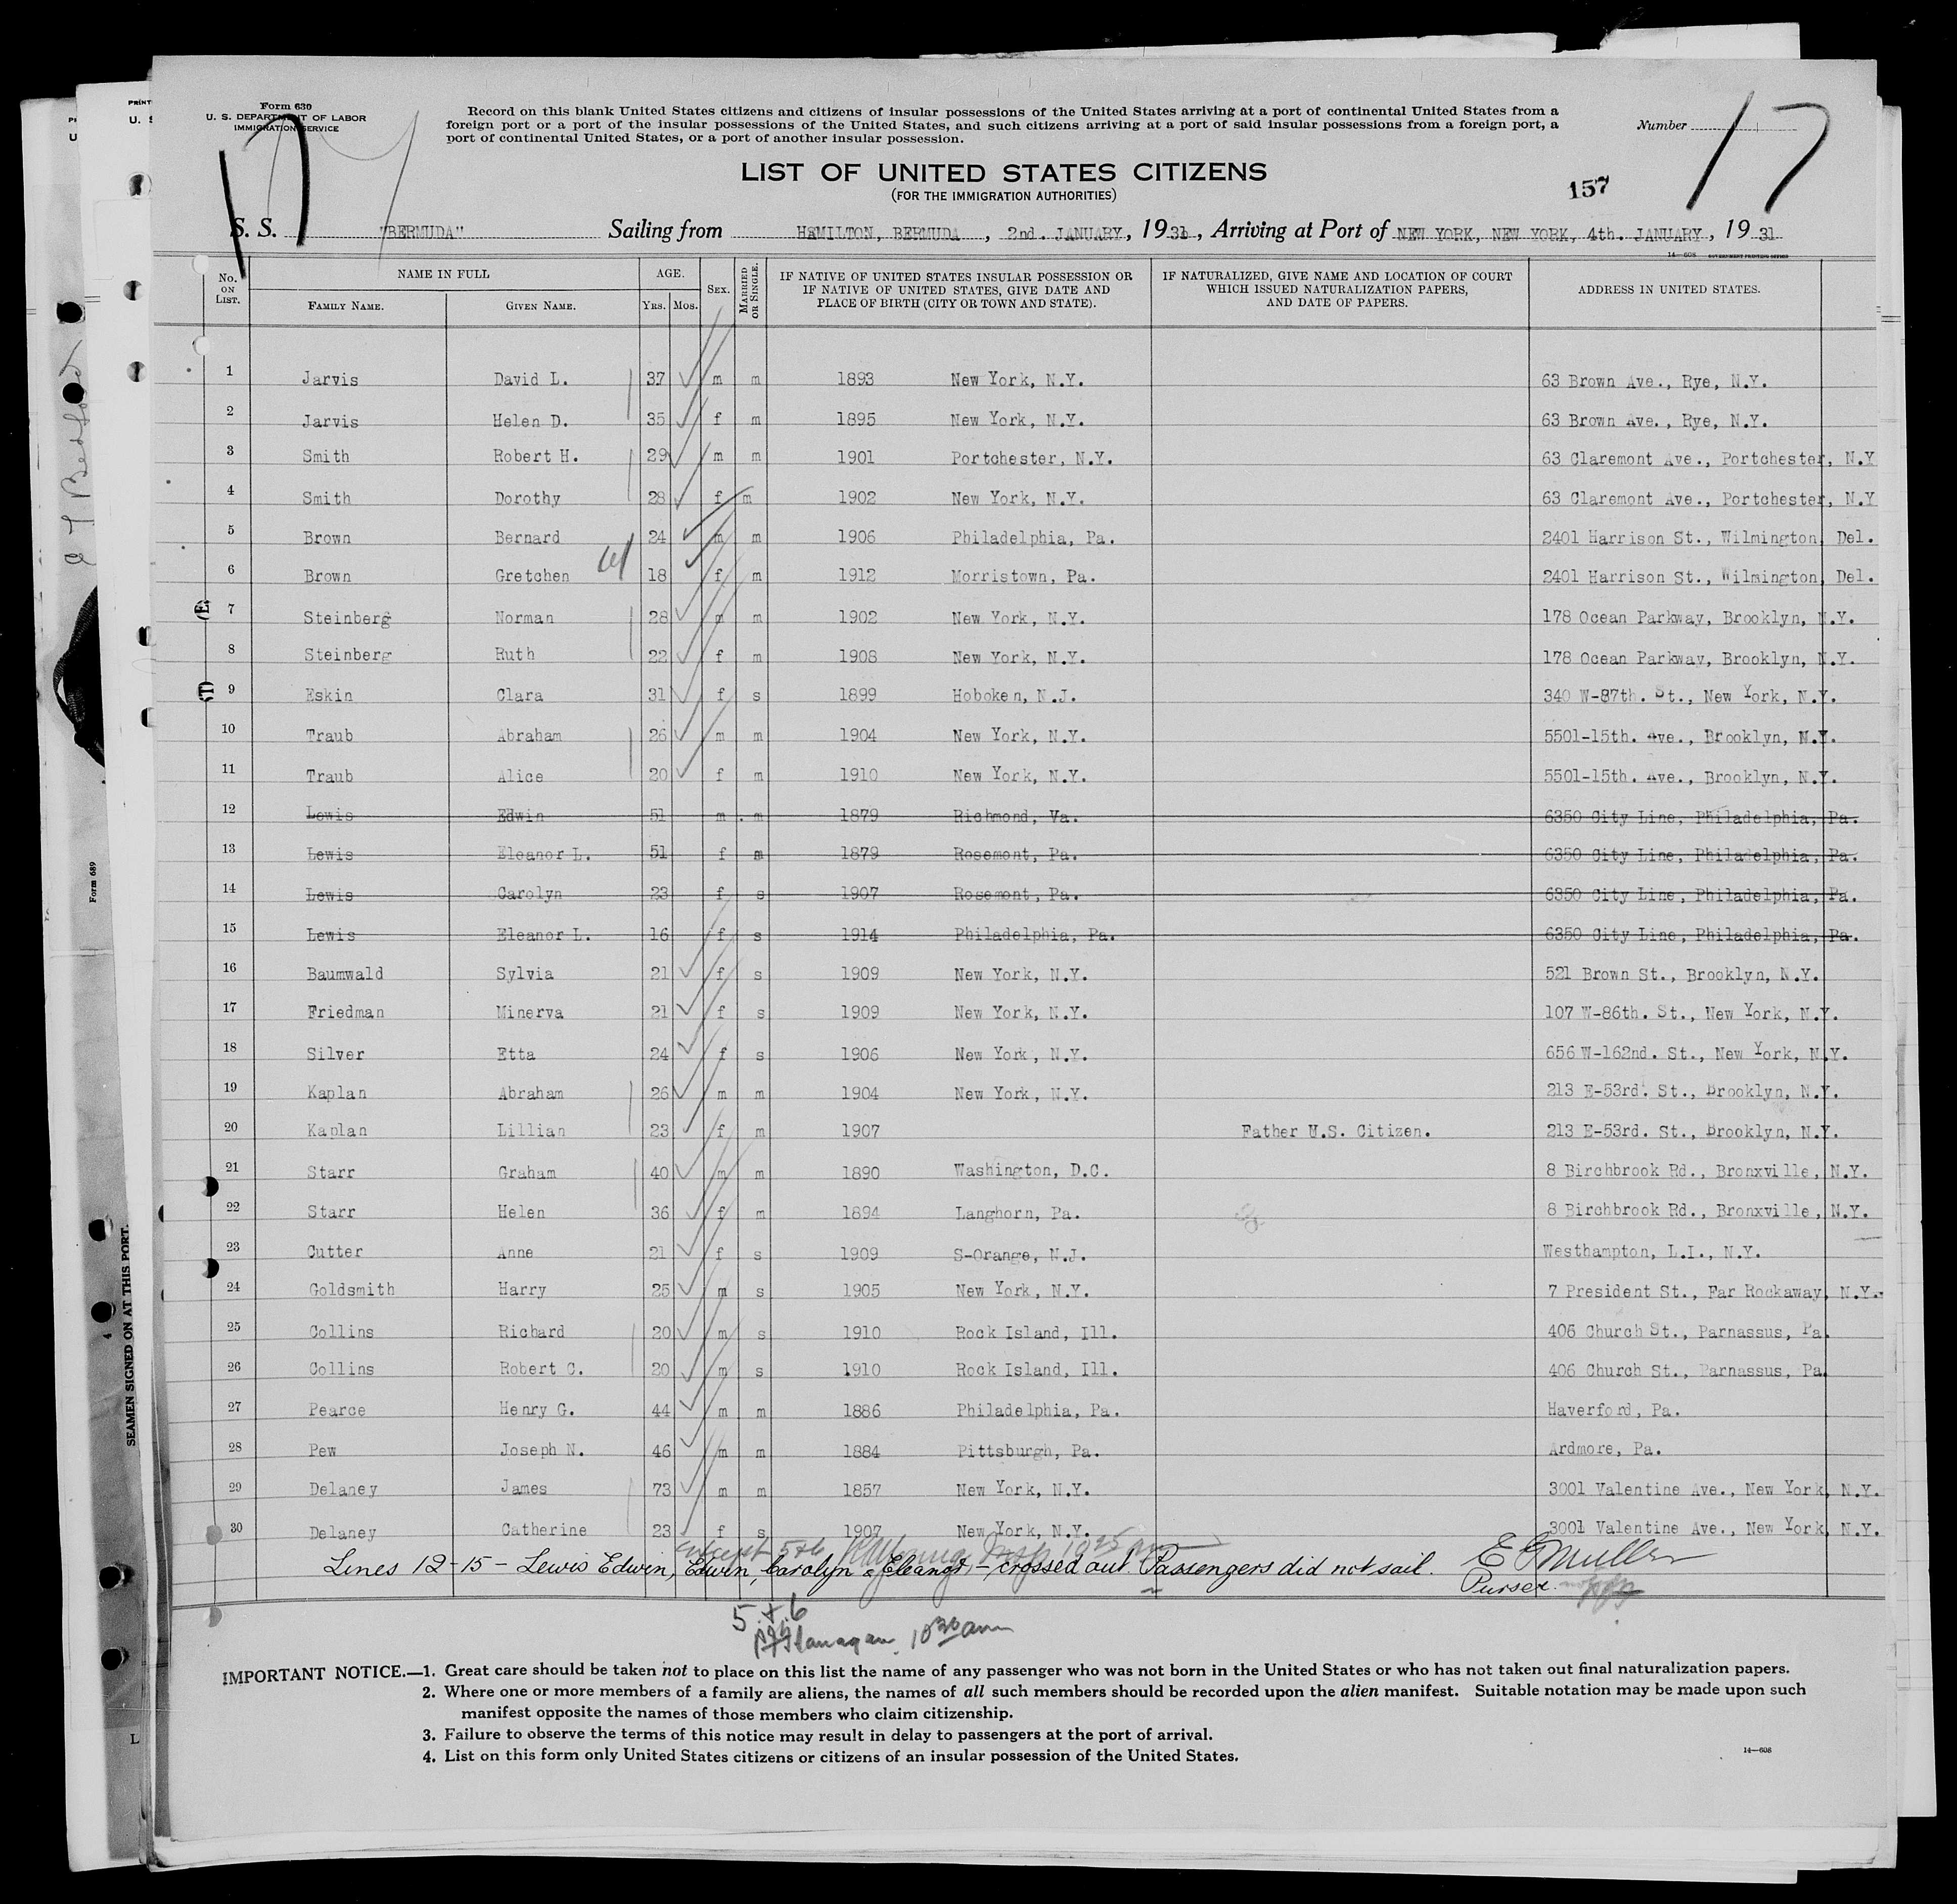 Form 630
U. S. DEPARTMENT OF LABOR
IMMIGRATION SERVICE
Record on this blank United States citizens and citizens of insular possessions of the United States arriving at a port of continental United States from a
foreign port or a port of the insular possessions of the United States, and such citizens arriving at a port of said insular possessions from a foreign port, a
port of continental United States, or a port of another insular possession.
Number
17
17
LIST OF UNITED STATES CITIZENS
(FOR THE IMMIGRATION AUTHORITIES)
157
S. S. "BERMUDA" Sailing from HAMILTON, BERMUDA, 2nd. JANUARY, 1931, Arriving at Port of NEW YORK, NEW YORK, 4th. JANUARY, 1931
14—608 GOVERNMENT PRINTING OFFICE
No. ON LIST. NAME IN FULL FAMILY NAME. GIVEN NAME. AGE. YRS. MOS. SEX. MARRIED OR SINGLE. IF NATIVE OF UNITED STATES INSULAR POSSESSION OR IF NATIVE OF UNITED STATES, GIVE DATE AND PLACE OF BIRTH (CITY OR TOWN AND STATE). IF NATURALIZED, GIVE NAME AND LOCATION OF COURT WHICH ISSUED NATURALIZATION PAPERS, AND DATE OF PAPERS. ADDRESS IN UNITED STATES.
1 Jarvis David L. 37 m m 1893 New York, N.Y. 63 Brown Ave., Rye, N.Y.
2 Jarvis Helen D. 35 f m 1895 New York, N.Y. 63 Brown Ave., Rye, N.Y.
3 Smith Robert H. 29 m m 1901 Portchester, N.Y. 63 Claremont Ave., Portchester, N.Y
4 Smith Dorothy 28 f m 1902 New York, N.Y. 63 Claremont Ave., Portchester, N.Y
5 Brown Bernard 24 m m 1906 Philadelphia, Pa. 2401 Harrison St., Wilmington, Del.
6 Brown Gretchen 18 f m 1912 Morristown, Pa. 2401 Harrison St., Wilmington, Del.
(E) 7 Steinberg Norman 28 m m 1902 New York, N.Y. 178 Ocean Parkway, Brooklyn, N.Y.
8 Steinberg Ruth 22 f m 1908 New York, N.Y. 178 Ocean Parkway, Brooklyn, N.Y.
(T) 9 Eskin Clara 31 f s 1899 Hoboken, N.J. 340 W-87th. St., New York, N.Y.
10 Traub Abraham 26 m m 1904 New York, N.Y. 5501-15th. Ave., Brooklyn, N.Y.
11 Traub Alice 20 f m 1910 New York, N.Y. 5501-15th. Ave., Brooklyn, N.Y.
12 Lewis Edwin 51 m m 1879 Richmond, Va. 6350 City Line, Philadelphia, Pa.
13 Lewis Eleanor L. 51 f m 1879 Rosemont, Pa. 6350 City Line, Philadelphia, Pa.
14 Lewis Carolyn 23 f s 1907 Rosemont, Pa. 6350 City Line, Philadelphia, Pa.
15 Lewis Eleanor L. 16 f s 1914 Philadelphia, Pa. 6350 City Line, Philadelphia, Pa.
16 Baumwald Sylvia 21 f s 1909 New York, N.Y. 521 Brown St., Brooklyn, N.Y.
17 Friedman Minerva 21 f s 1909 New York, N.Y. 107 W-86th. St., New York, N.Y.
18 Silver Etta 24 f s 1906 New York, N.Y. 656 W-162nd. St., New York, N.Y.
19 Kaplan Abraham 26 m m 1904 New York, N.Y. 213 E-53rd. St., Brooklyn, N.Y.
20 Kaplan Lillian 23 f m 1907 Father U.S. Citizen. 213 E-53rd. St., Brooklyn, N.Y.
21 Starr Graham 40 m m 1890 Washington, D.C. 8 Birchbrook Rd., Bronxville, N.Y.
22 Starr Helen 36 f m 1894 Langhorn, Pa. 8 Birchbrook Rd., Bronxville, N.Y.
23 Cutter Anne 21 f s 1909 S-Orange, N.J. Westhampton, L.I., N.Y.
24 Goldsmith Harry 25 m s 1905 New York, N.Y. 7 President St., Far Rockaway, N.Y.
25 Collins Richard 20 m s 1910 Rock Island, Ill. 406 Church St., Parnassus, Pa.
26 Collins Robert C. 20 m s 1910 Rock Island, Ill. 406 Church St., Parnassus, Pa.
27 Pearce Henry G. 44 m m 1886 Philadelphia, Pa. Haverford, Pa.
28 Pew Joseph N. 46 m m 1884 Pittsburgh, Pa. Ardmore, Pa.
29 Delaney James 73 m m 1857 New York, N.Y. 3001 Valentine Ave., New York, N.Y.
30 Delaney Catherine 23 f s 1907 New York, N.Y. 3001 Valentine Ave., New York, N.Y.
except 5+6
Lines 12-15 - Lewis Edwin, Edwin, Carolyn & Eleanor - crossed out. Passengers did not sail. E G Muller
Purser
5 + 6
Flanagan 10 30 am
IMPORTANT NOTICE.—1. Great care should be taken not to place on this list the name of any passenger who was not born in the United States or who has not taken out final naturalization papers.
2. Where one or more members of a family are aliens, the names of all such members should be recorded upon the alien manifest. Suitable notation may be made upon such
manifest opposite the names of those members who claim citizenship.
3. Failure to observe the terms of this notice may result in delay to passengers at the port of arrival.
4. List on this form only United States citizens or citizens of an insular possession of the United States.
14—608
Form 689
SEAMEN SIGNED ON AT THIS PORT.